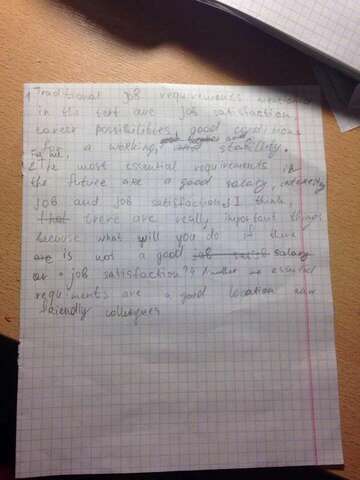 1. Traditional job requirements mentioned
in the text are job satisfaction
career possibilities, good conditions
for a working, and stability.
2. The most essential requirements in
the future are a good salary, interesting
job and job satisfaction. I think,
that there are really important things
because what will you do if there
are is not a good job satisf salary
or a job satisfaction? Another essential
requirments are a good location
friendly collegues